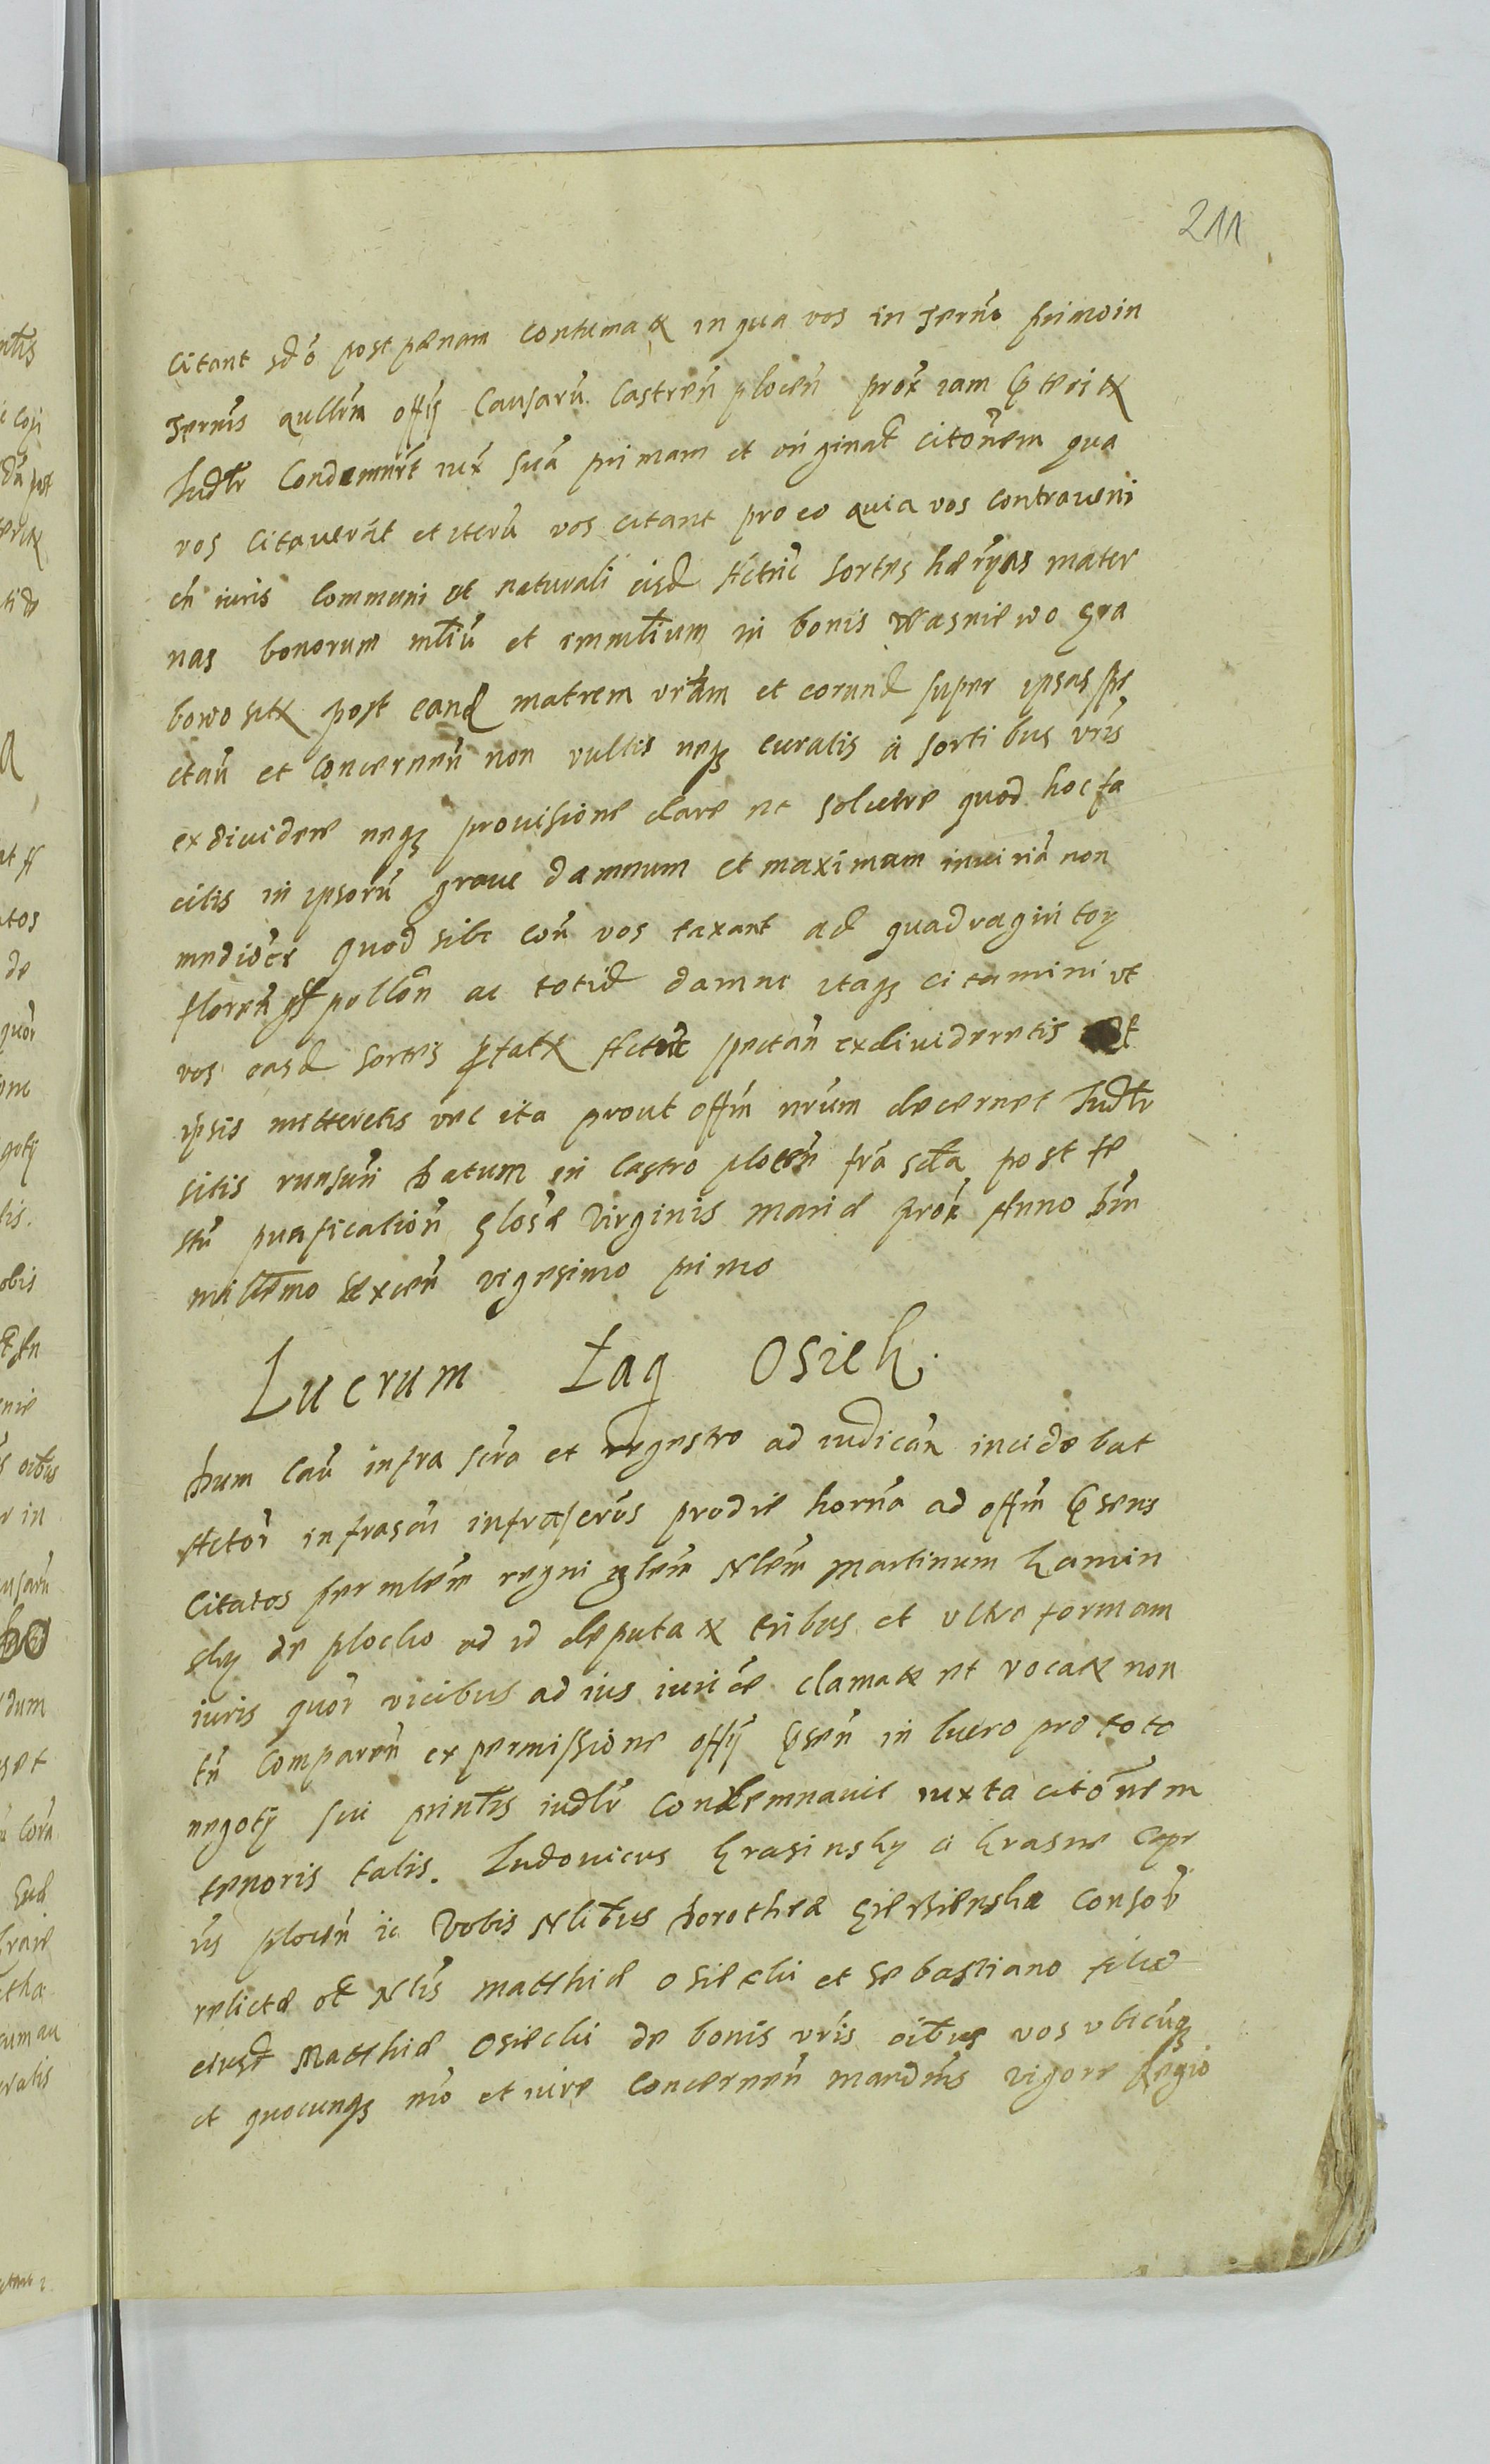 211
Citant sdo post pœnam contumax in qua vos in Termo primo in
Termis qullm offij Causaru Castren plocen prox iam
Iudlr Condemnrt iux sua primam et originat citonem qua
vos Citaverut et iteru vos citant pro eo quia vos contraveni
en iuris Communi et naturali eisd Actric sortes hærjas mater
nas bonorum mliu et immlium in bonis Wasniewo Gra
bowo sitx post eand matrem vram et eorund super ipsas spe
ctan et Concernen non vultis neq curatis a sortibus vris
exdividere neq provisione dare et solvere quod hoc fa
citis in ipsoru grave damnum et maximam iniuria non
mediocr quod sibi con vos taxant ad quadraginta
floren pollon ac totid damni itaq citamini ut
vos easd sortes Actric spectan exdivideretis et
ipsis mitteretis vel ita prout offm nrum decernet Iudlr
sitis runsuri Datum in Castro plocen fra scda post fe
stu purification Glosæ Virginis Mariæ prox Anno Dni
millemo Sexcen vigesimo primo
Lucrum Łag Osiek
Dum Cau infra scra et regestro ad iudican incidebat
Actor infrascri infrascrus prodie horna ad offm psens
Citatos per mlem regni glem Nlem Martinum Kamin
sky de plocko ad id deputax tribus et ultra formam
iuris quor vicibus ad ius iurice clamax et vocax non
tn Comparen ex permissione offij psen in lucro pro toto
negotij sui printis iudlr Condemnavit iuxta citonem
tenoris talis. Ludovicus Krasinsky a Krasne Cape
us plocen ic Vobis Nlibus Dorotheæ Consor
relictæ ol Nlis Matthiæ Osiecki et Sebastiano filio
eiusd Matthiæ Osiecki de bonis vris oibus vos ubicuq
et quocunq mo et iure Concernen mandms vigore Regio